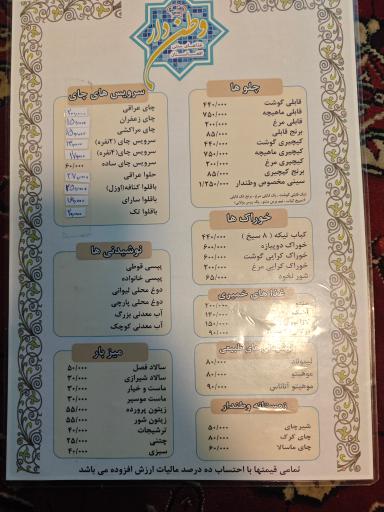 وطن‌دار
چلو ها
قابلی گوشت ۴۴۰/۰۰۰
قابلی ماهیچه ۷۵۰/۰۰۰
قابلی مرغ ۲۰۰/۰۰۰
برنج قابلی ۸۵/۰۰۰
کیچیری گوشت ۴۴۰/۰۰۰
کیچیری ماهیچه ۷۵۰/۰۰۰
کیچیری مرغ ۲۰۰/۰۰۰
کیچیری ۸۵/۰۰۰
سینی مخصوص وطندار ۱/۲۵۰/۰۰۰
خوراک ها
کباب تیکه ( ۸ سیخ ) ۴۴۰/۰۰۰
خوراک دوپیازه ۶۰۰/۰۰۰
خوراک کرایی گوشت ۶۰۰/۰۰۰
خوراک کرایی مرغ ۲۰۰/۰۰۰
شور نخود ۶۵/۰۰۰
غذا های خمیری
۲۰۰/۰۰۰
۱۴۰/۰۰۰
۱۵۰/۰۰۰
۹۰/۰۰۰
های طبیعی
لیموناد ۸۰/۰۰۰
موهیتو ۸۰/۰۰۰
موهیتو آناناس ۹۰/۰۰۰
زمستانه وطندار
شیرچای ۵۰/۰۰۰
چای کرک ۸۰/۰۰۰
چای ماسالا ۶۰/۰۰۰
سرویس های چای
چای عراقی
چای زعفران
چای مراکشی
سرویس چای (۲نفره)
سرویس چای(۴نفره)
سرویس چای ساده ۶۰/۰۰۰
حلوا عراقی
باقلوا کنافه(اوزل)
باقلوا سارای
باقلوا تک
نوشیدنی ها
پپسی قوطی
پپسی خانواده
دوغ محلی لیوانی
دوغ محلی پارچی
آب معدنی بزرگ
آب معدنی کوچک
میز بار
سالاد فصل ۵۰/۰۰۰
سالاد شیرازی ۳۰/۰۰۰
ماست و خیار ۳۰/۰۰۰
ماست موسیر ۳۰/۰۰۰
زیتون پرورده ۵۵/۰۰۰
زیتون شور ۵۵/۰۰۰
ترشیجات ۴۰/۰۰۰
چتنی ۲۵/۰۰۰
سبزی ۴۰/۰۰۰
تمامی قیمتها با احتساب ده درصد مالیات ارزش افزوده می باشد